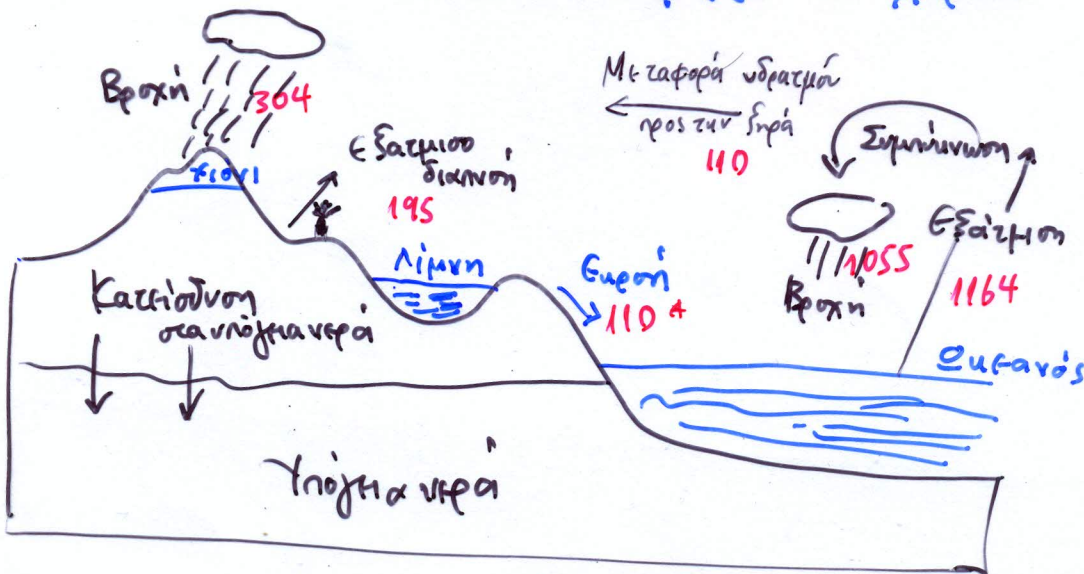 Βροχή
304
χιόνι
Εξατμισο
διαπνοή
195
Μεταφορά υδρατμών
προς την ξηρά
110
Συμπύκνωση
Εξάτμιση
1164
1055
Βροχή
Λίμνη
Εκροή
110
Κατείσδυση
στα υπόγεια νερά
Ωκεανός
Υπόγεια νερά